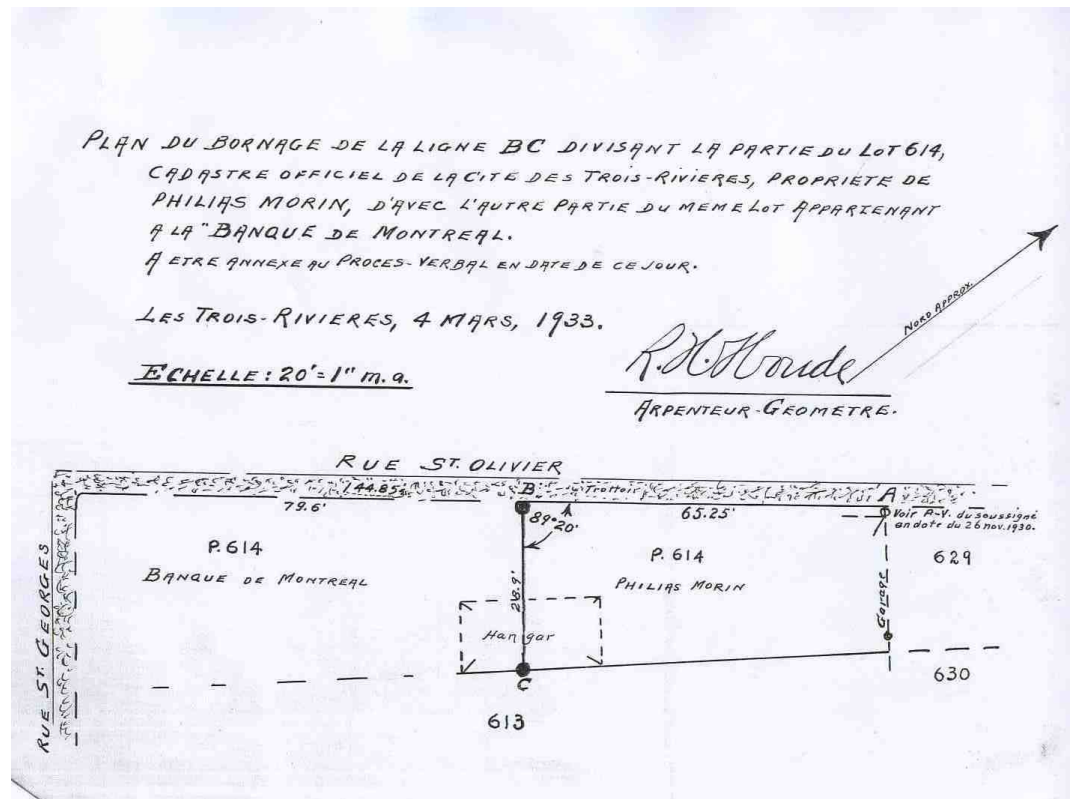 PLAN DU BORNAGE DE LA LIGNE BC DIVISANT LA PARTIE DU LOT 614,
CADASTRE OFFICIEL DE LA CITE DES TROIS-RIVIERES, PROPRIETE DE
PHILIAS MORIN, D'AVEC L'AUTRE PARTIE DU MEME LOT APPARTENANT
A LA "BANQUE DE MONTREAL.
A ETRE ANNEXE AU PROCES-VERBAL EN DATE DE CE JOUR.
LES TROIS-RIVIERES, 4 MARS, 1933.
NORD APPROX.
ECHELLE: 20'=1" m.a.
R.H. Houde
ARPENTEUR-GEOMETRE.
RUE ST. OLIVIER
144.85
B
Trottoir
A
79.6'
89°20'
65.25'
Voir P-V. du soussigné
en date du 26 nov. 1930.
P. 614
BANQUE DE MONTREAL
P. 614
PHILIAS MORIN
629
28.9'
Garage
Hangar
RUE ST. GEORGES
C
630
613